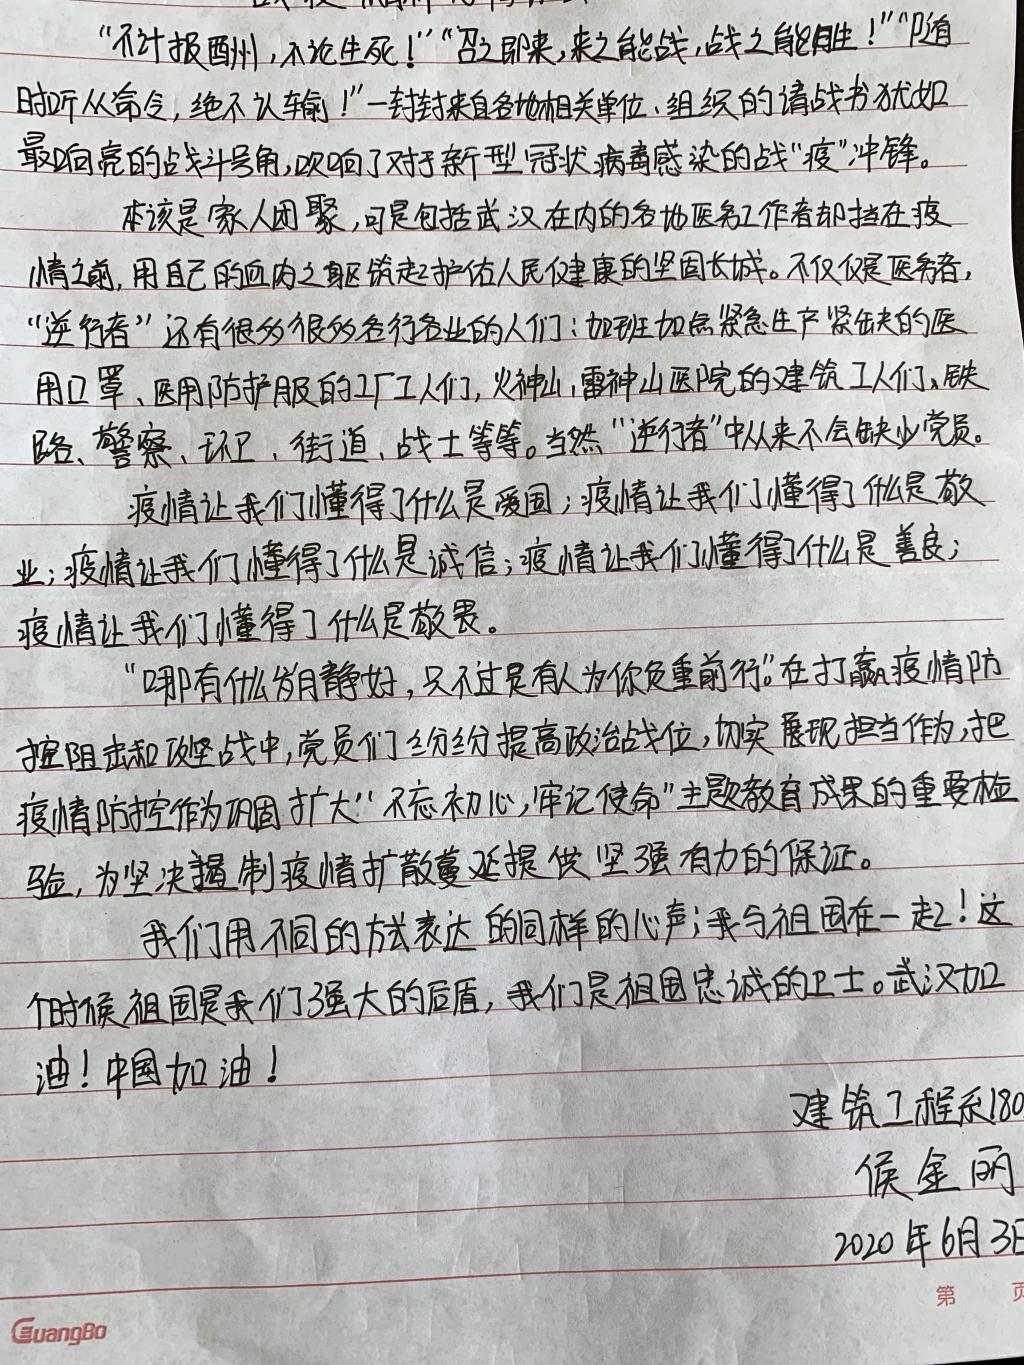 “不计报酬，不论生死！”“召之即来，来之能战，战之能胜！”“随
时听从命令，绝不认输！”一封封来自各地相关单位、组织的请战书犹如
最响亮的战斗号角，吹响了对于新型冠状病毒感染的战“疫”冲锋。
本该是家人团聚，可是包括武汉在内的各地医务工作者却挡在疫
情之前，用自己的血肉之躯筑起护佑人民健康的坚固长城。不仅仅是医务者，
“逆行者”还有很多很多各行各业的人们：加班加点紧急生产紧缺的医
用口罩、医用防护服的工厂工人们，火神山，雷神山医院的建筑工人们、铁
路、警察、环卫、街道、战士等等。当然“逆行者”中从来不会缺少党员。
疫情让我们懂得了什么是爱国；疫情让我们懂得了什么是敬
业；疫情让我们懂得了什么是诚信；疫情让我们懂得了什么是善良；
疫情让我们懂得了什么是敬畏。
“哪有什么岁月静好，只不过是有人为你负重前行”。在打赢疫情防
控阻击和攻坚战中，党员们纷纷提高政治战位，切实展现担当作为，把
疫情防控作为巩固扩大“不忘初心，牢记使命”主题教育成果的重要检
验，为坚决遏制疫情扩散蔓延提供坚强有力的保证。
我们用不同的方式表达的同样的心声；我与祖国在一起！这
个时候祖国是我们强大的后盾，我们是祖国忠诚的卫士。武汉加
油！中国加油！
建筑工程系180
侯金丽
2020年6月3日
第 页
GuangBo